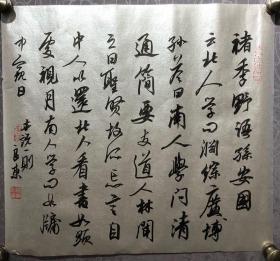 褚季野語孫安國
云北人学问淵綜廣博
孫答曰南人學问清
通简要支道人林闻
之曰聖賢故所忘言自
中人以還北人看書如顯
處視月南人学问如牖
中窺日
世說一則